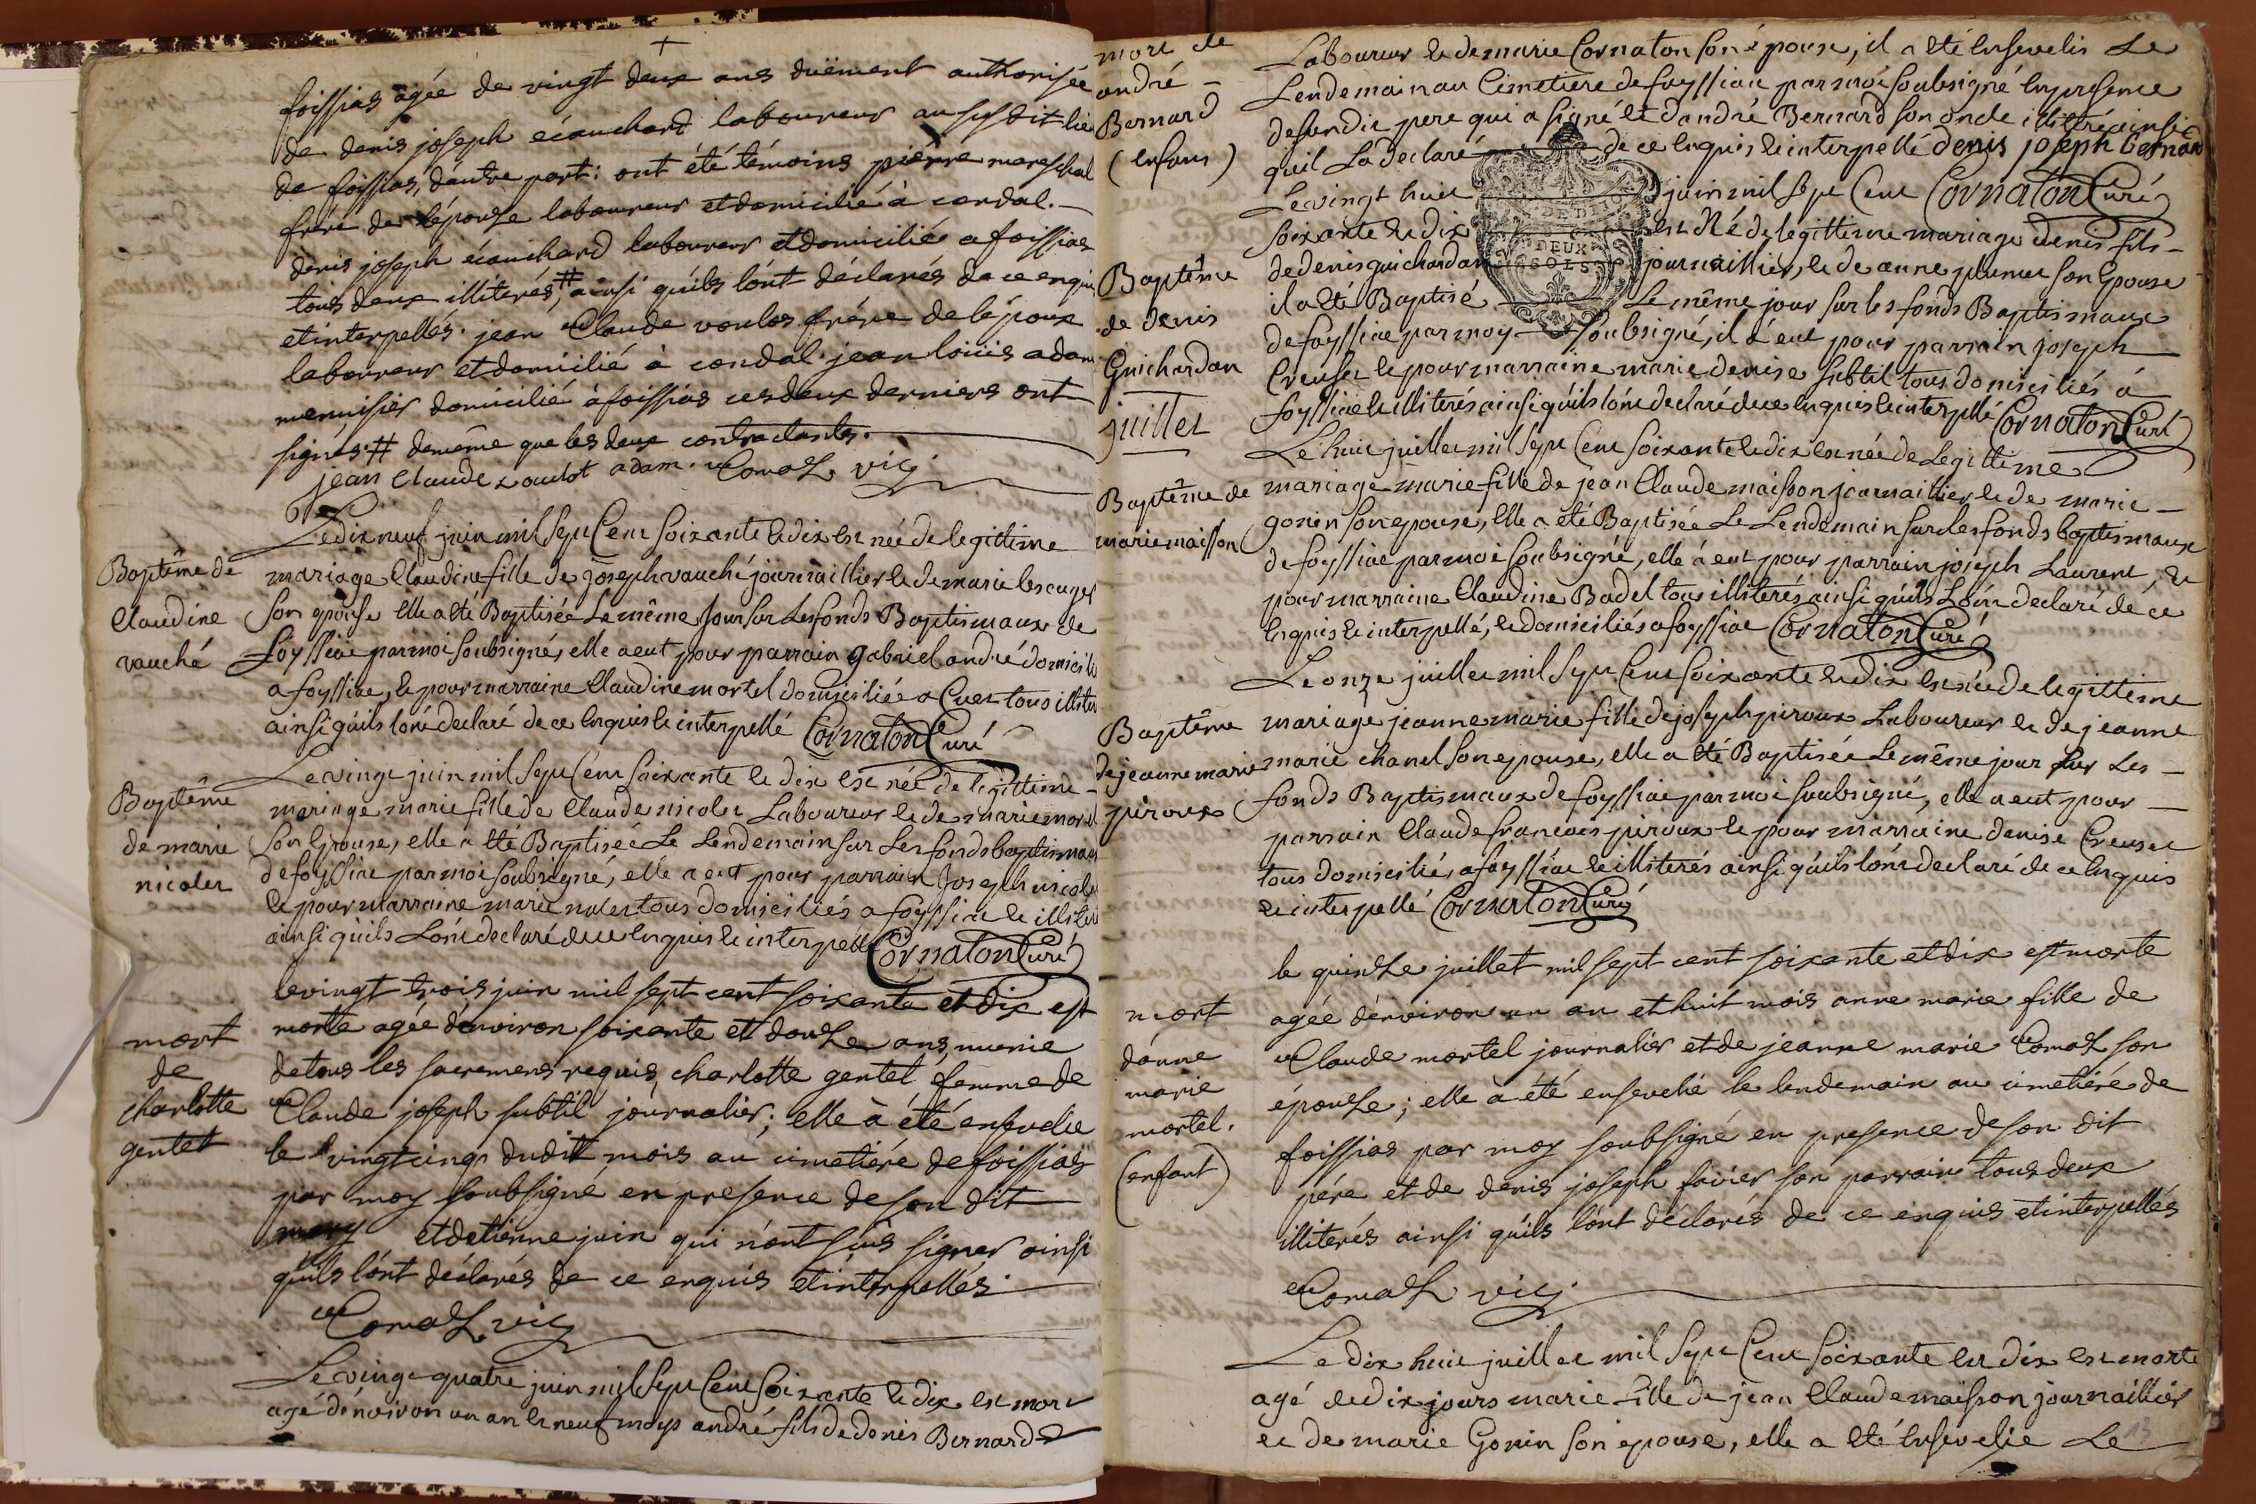 foissias agée de vingt deux ans duëment authorisée
de denis joseph écauchard laboureur au susdit lieu
de foissias, dautre part: ont été témoins pierre mareschal
frère de lépouse laboureur et domicilié à condal.
denis joseph écauchard laboureur et domicilié a foissias
tous deux illiterés,# ainsi quils lónt déclarés de ce enquis
et interpellés. jean Claude voulos frére de lépoux
laboureur et domicilié à condal. jean louis adam
menuisier domicilié à foissias ces deux derniers ont
signés # demême que les deux contractants.
jean Claude adam. Comas vic.
Baptême de
Claudine
vauché
Le dix neuf juin mil sept Cent soixante et dix est née de legittime
mariage Claudine fille de joseph vauché journaillier et de marie
son epouse elle a été Baptisée Le même Jour sur Les fonds Baptismaux de
foyssiac par moi soubsigné, elle a eut pour parrain gabriel andré domicilié
a foyssiac, et pour marraine Claudine mortel domiciliée a Cuet tous
ainsi quils lónt declaré de ce Enquis et interpellé Cornaton Curé
Baptême
de marie
nicolet
Le vingt juin mil sept Cent soixante et dix est née de legittime
mariage marie fille de Claude nicolet Laboureur et de marie
son Epouse, elle a été Baptisée Le Lendemain sur Les fonds baptismaux
de foyssiac par moi soubsigné, elle a eut pour parrain Joseph nicolet
et pour marraine marie tous domiciliés a foyssiac et
ainsi quils Lónt declaré de ce Enquis et interpellé Cornaton Curé
mort
de
charlotte
gentet
le vingt trois juin mil sept cent soixante et dix est
morte agée dénviron soixante et douse ans, munie
de tous les sacremens requis, charlotte gentet femme de
Claude joseph subtil journalier; elle à été ensevelie
le vingt cinq dudit mois au cimetiére de foissias
par moy soubsigné en presence de son dit
mary et detienne juin qui nónt sçus signer ainsi
quils lónt déclarés de ce enquis et interpellés.
Comas vic.
Le vingt quatre juin mil sept Cent soixante et dix est mort
agé dénviron un an et neuf moys andré fils de denis Bernard
mort de
andré
Bernard
(enfans)
Laboureur et de marie Cornaton son épouse, il a été Ensevelis Le
Lendemain au Cimetiere de foyssiac par moi soubsigné En presence
de sondit pere qui a signé et dandré Bernard son oncle illitéré ainsi
quil La declaré de ce Enquis et interpellé denis joseph bernard
Cornaton Curé
DEUX
SOLS
Baptême
de denis
Guichardan
Le vingt huit juin mil sept Cent
soixante et dix est Né de legittime mariage denis fils
de denis guichardan journaillier, et de anne son Epouse
il a été Baptisé Le même jour sur les fonds Baptismaux
de foyssiac par moy soubsigné, il à eut pour parrain joseph
Creuset et pour marraine marie denise subtil tous domiciliés à
foyssiac et illiterés ainsi quils lónt declaré de ce Enquis et interpellé Cornaton Curé
juillet
Baptême de
marie maisson
Le huit juillet mil sept Cent soixante et dix est née de Legittime
mariage marie fille de jean Claude maisson journaillier et de marie
gonin son epouse, elle a été Baptisée Le Lendemain sur Les fonds baptismaux
de foyssiac par moi soubsigné, elle à eut pour parrain joseph Laurent, et
pour marraine Claudine Badel tous illiterés ainsi quils Lónt declaré de ce
Enquis et interpellé, et domiciliés a foyssiac Cornaton Curé
Baptême
de jeanne marie
piroux
Le onze juillet mil sept Cent soixante et dix est née de legittime
mariage jeanne marie fille de joseph piroux Laboureur et de jeanne
marie chanel son epouse, elle a été Baptisée Le même jour sur Les
fonds Baptismaux de foyssiac par moi soubsigné, elle a eut pour
parrain Claude francois piroux et pour marraine denise Creuset
tous domiciliés a foyssiac et illiterés ainsi quils lónt declaré de ce Enquis
et interpellé Cornaton Curé
mort
dánne
marie
mortel.
(enfant)
le quinse juillet mil sept cent soixante et dix est morte
agée dénviron un an et huit mois anne marie fille de
Claude mortel journalier et de jeanne marie Comas son
épouse; elle à été ensevelie le lendemain au cimetiére de
foissias par moy soubsigné en presence de son dit
pére et de denis joseph son parrain tous deux
illiterés ainsi quils lónt déclarés de ce enquis et interpellés
Comas vic.
Le dix huit juillet mil sept Cent soixante et dix est morte
agé de dix jours marie fille de jean Claude maisson journaillier
et de marie Gonin son epouse, elle a été Ensevelie Le
13